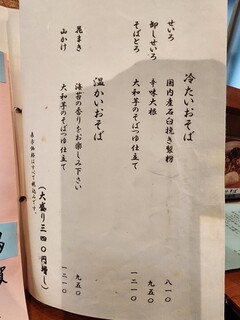 冷たいおそば
せいろ 国内産石臼挽き製粉 八一〇
卸しせいろ 辛味大根 九五〇
そばとろ 大和芋のそばつゆ仕立て 一二一〇
温かいおそば
花まき 海苔の香りをお楽しみ下さい 九五〇
山かけ 大和芋のそばつゆ仕立て 一二一〇
(大盛り三四〇円増し)
表示価格はすべて税込みです。